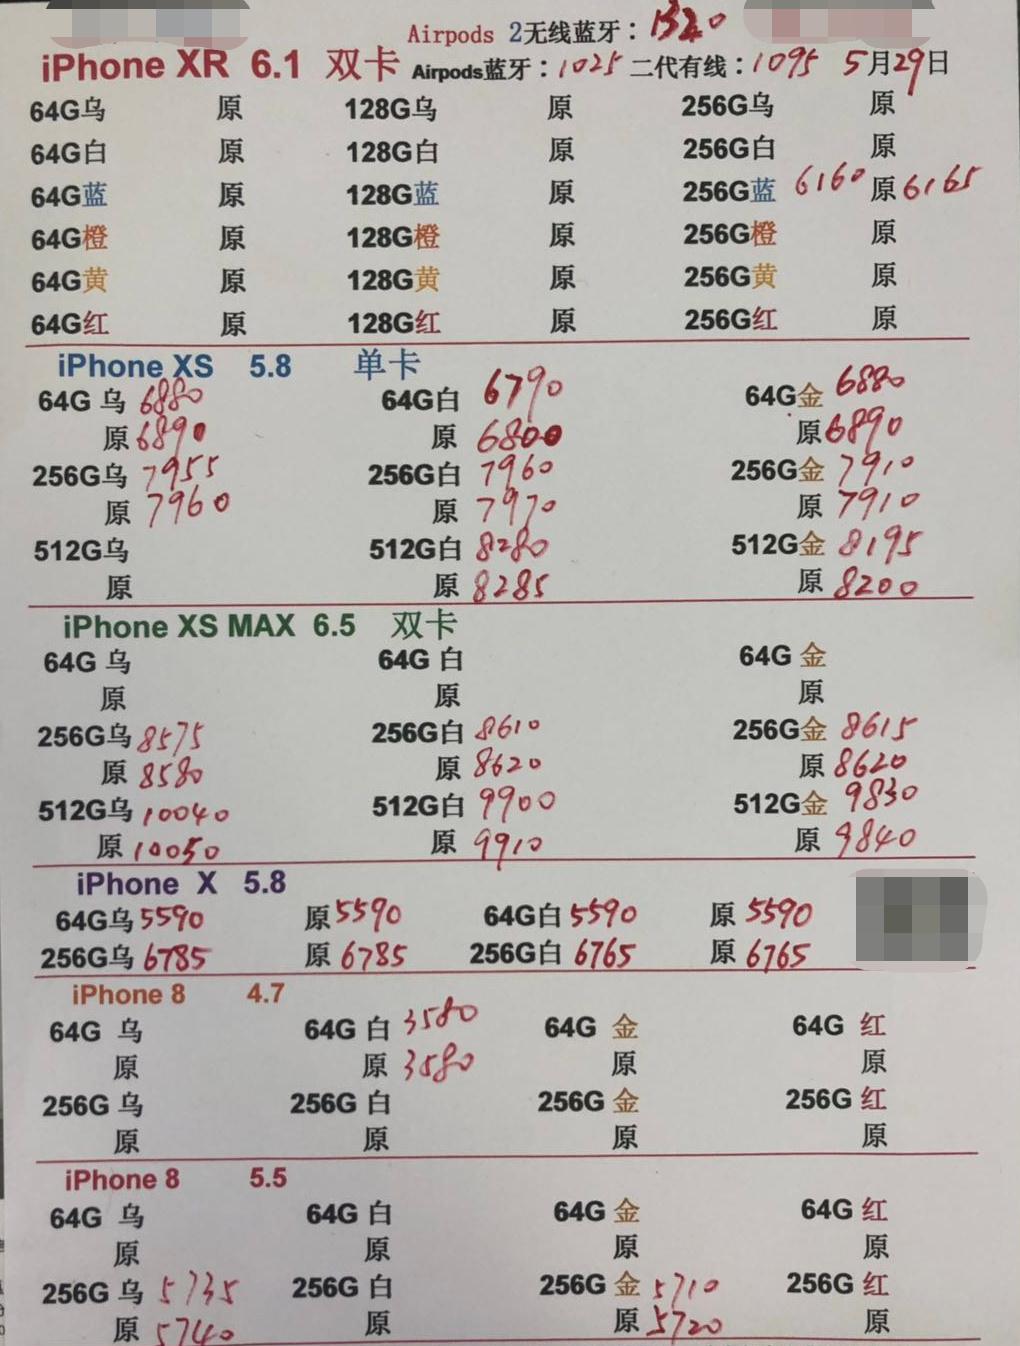 Airpods 2无线蓝牙：1320
iPhone XR 6.1 双卡 Airpods蓝牙：1025 二代有线：1095 5月29日
64G乌 原 128G乌 原 256G乌 原
64G白 原 128G白 原 256G白 原
64G蓝 原 128G蓝 原 256G蓝 6160 原6165
64G橙 原 128G橙 原 256G橙 原
64G黄 原 128G黄 原 256G黄 原
64G红 原 128G红 原 256G红 原
iPhone XS 5.8 单卡
64G 乌 6880 64G白 6790 64G金 6880
原6890 原 6800 原6890
256G乌 7955 256G白 7960 256G金 7910
原 7960 原 7970 原 7910
512G乌 512G白 8280 512G金 8195
原 原 8285 原 8200
iPhone XS MAX 6.5 双卡
64G 乌 64G 白 64G 金
原 原 原
256G乌 8575 256G白 8610 256G金 8615
原 8580 原 8620 原 8620
512G乌 10040 512G白 9900 512G金 9830
原 10050 原 9910 原 9840
iPhone X 5.8
64G乌 5590 原 5590 64G白 5590 原 5590
256G乌 6785 原 6785 256G白 6765 原 6765
iPhone 8 4.7
64G 乌 64G 白 3580 64G 金 64G 红
原 原 3580 原 原
256G 乌 256G 白 256G 金 256G 红
原 原 原 原
iPhone 8 5.5
64G 乌 64G 白 64G 金 64G 红
原 原 原 原
256G 乌 5735 256G 白 256G 金 5710 256G 红
原 5740 原 原 5720 原